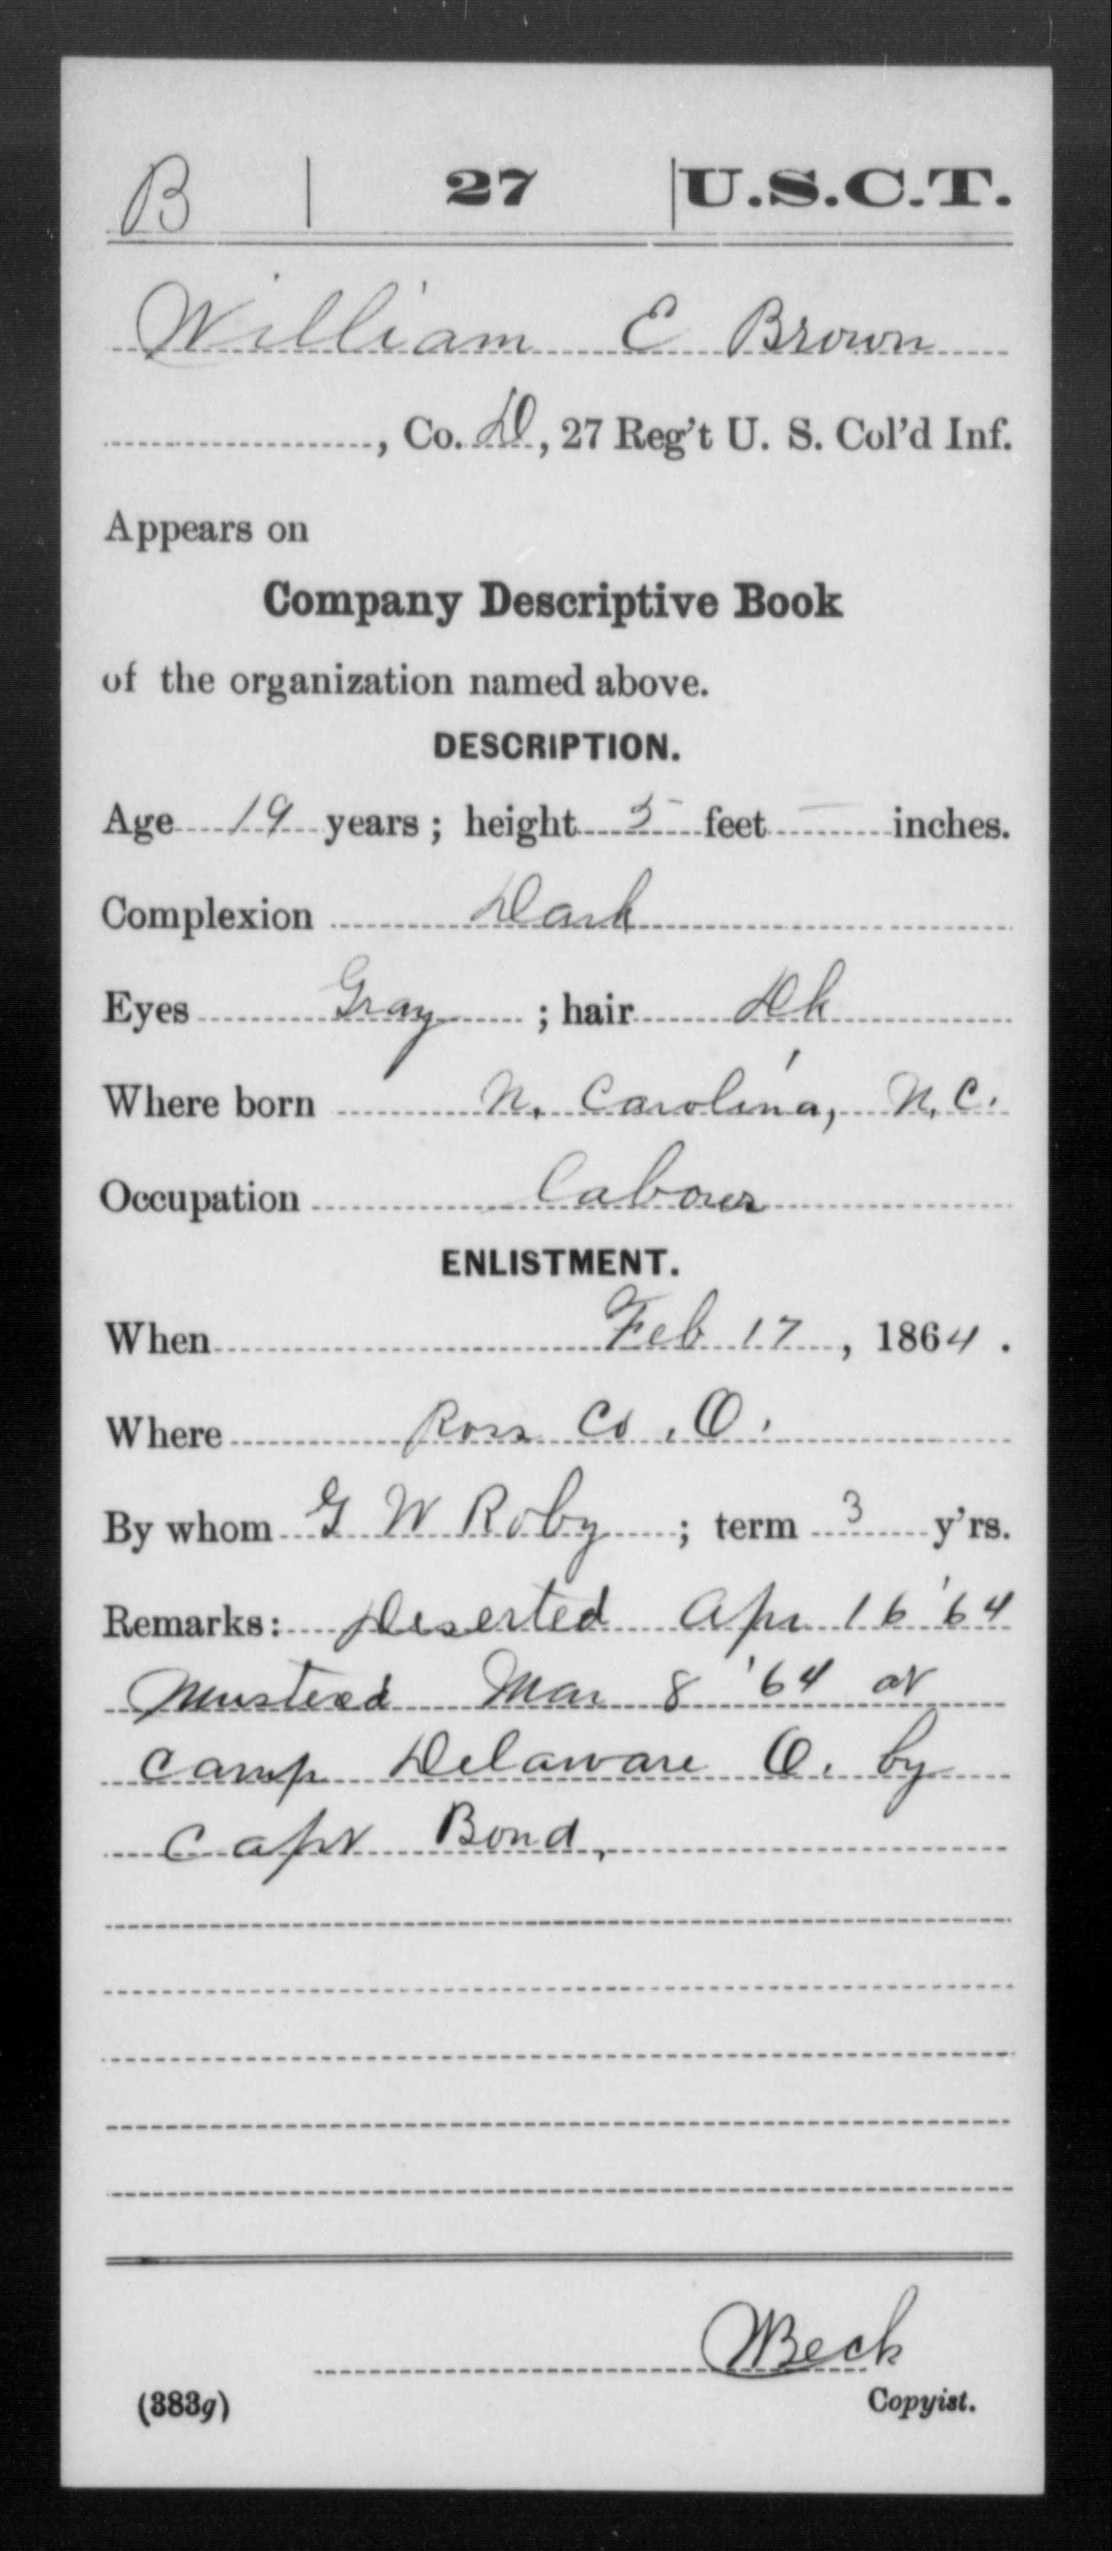 B | 27 | U.S.C.T.
William E Brown
, Co. D, 27 Reg't U. S. Col'd Inf.
Appears on
Company Descriptive Book
of the organization named above.
DESCRIPTION.
Age 19 years; height 5 feet — inches.
Complexion Dark
Eyes Gray; hair Dk
Where born N. Carolina, N.C.
Occupation Labourer
ENLISTMENT.
When Feb 17, 1864.
Where Ross Co, O.
By whom G W Roby; term 3 y'rs.
Remarks: Deserted Apr 16 '64
Mustered Mar 8 '64 at
Camp Delaware O. by
Capt Bond,
WBeck
(383g) Copyist.